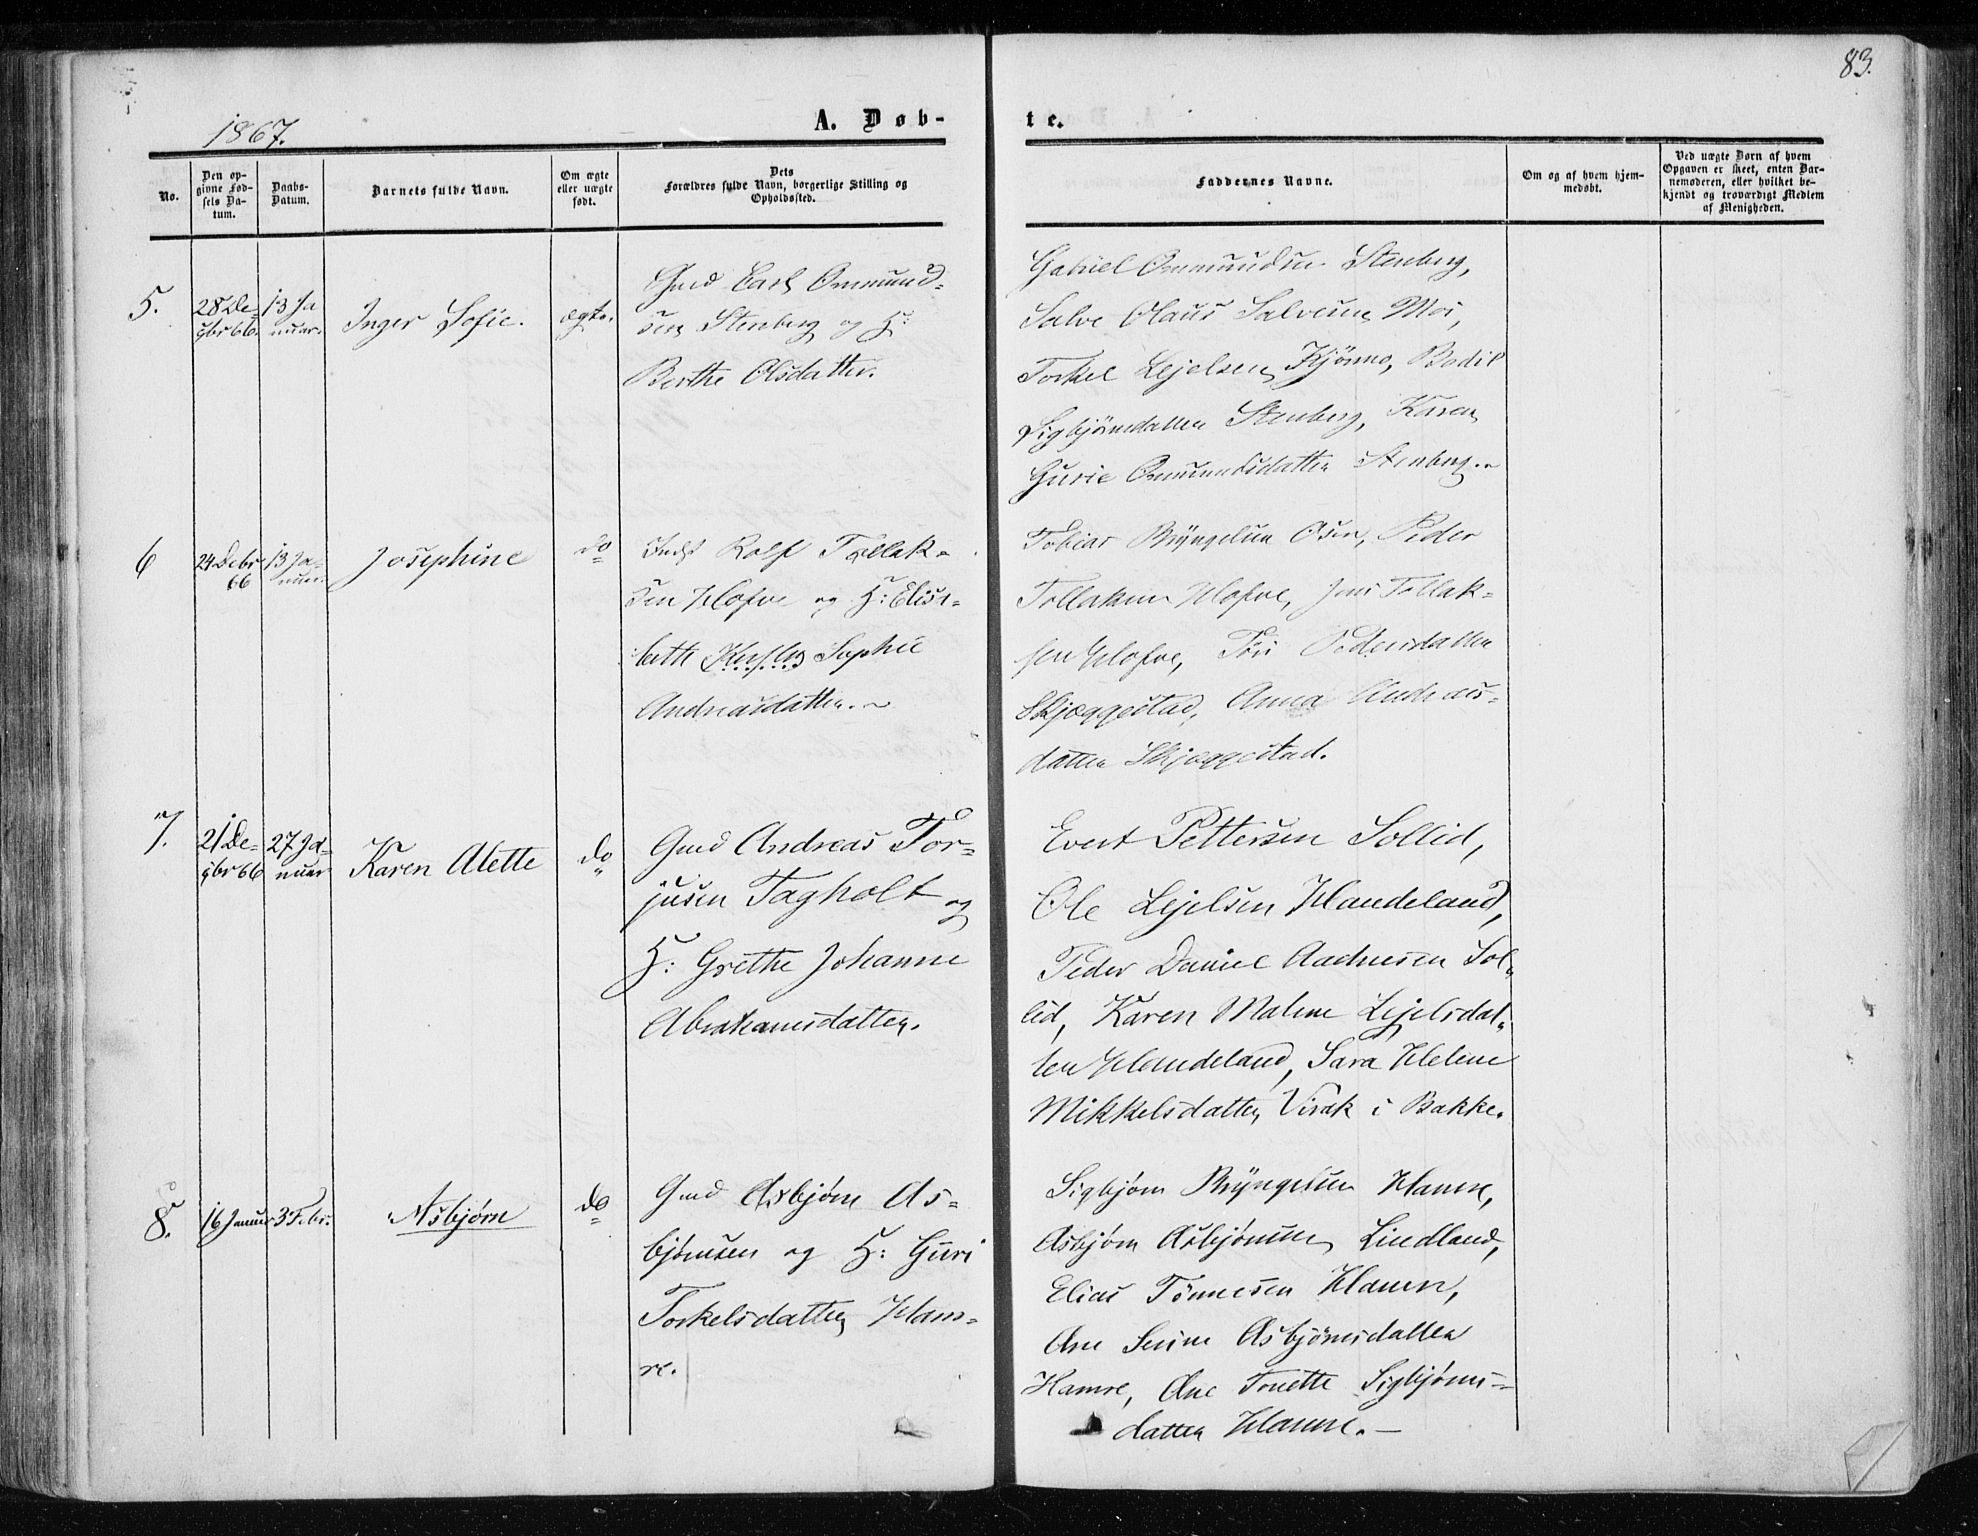 83.
1867.
A. Døb-
te.
No.
Den op-
givne Fød-
sels Da-
tum.
Daabs-
Datum.
Barnets fulde Navn.
Om ægte
eller uægte
født.
Dets
Forældres fulde Navn, borgerlige Stilling og
Opholdssted.
Faddernes Navne.
Om og af hvem hjem-
medøbt.
Ved uægte Børn af hvem
Opgaven er skeet, enten Bar-
nemoderen, eller hvilket be-
kjendt og troværdigt Medlem
af Menigheden.
5.
28 De-
cbr 66.
13 Ja
nuar.
Inger Sofie.
ægte.
Gmd Carl Ommund-
sen Stenberg og H:
Berthe Olsdatter.
Gabriel Ommundsen Stenberg,
Salve Olaus Salvesen Moi,
Torkel Lejelsen, Bodil
Sigbjørnsdatter Stenberg, Karen
Gurie Ommundsdatter Stenberg.
6
24 Debr
66
13 Ja-
nuar.
Josephine
do
Rolf Tollak-
sen Hofve og H: Elisa-
beth Sophie
Andreasdatter.
Tobias Bryngelsen Osen, Peder
Tollaksen Hofve, Jens Tollak-
sen Hofve, Pedersdatter
Skjæggestad, Anna Andreas-
datter Skjæggestad.
7.
21 De-
cbr 66
27 Ja-
nuar
Karen Alette
do
Gmd Andreas Tor-
jusen Tagholt og
H: Grethe Johanne
Abrahamsdatter.
Evert Pettersen Sollid,
Ole Lejelsen Haudeland,
Peder Daniel Aadnesen Sol-
lid, Karen Malene Lejelsdat-
ter Haudeland, Sara Helene
Mikkelsdatter, Virak i Bakke.
8.
16 Januar
3 Febr.
Asbjørn
do
Gmd Asbjørn As-
bjørnsen og H: Guri
Torkelsdatter Ham-
re.
Sigbjørn Bryngelsen Hamre,
Asbjørn Asbjørnsen Lindland,
Elias Tønnesen Hamre,
Ane Serine Asbjørnsdatter
Hamre, Ane Tonette Sigbjørns-
datter Hamre.